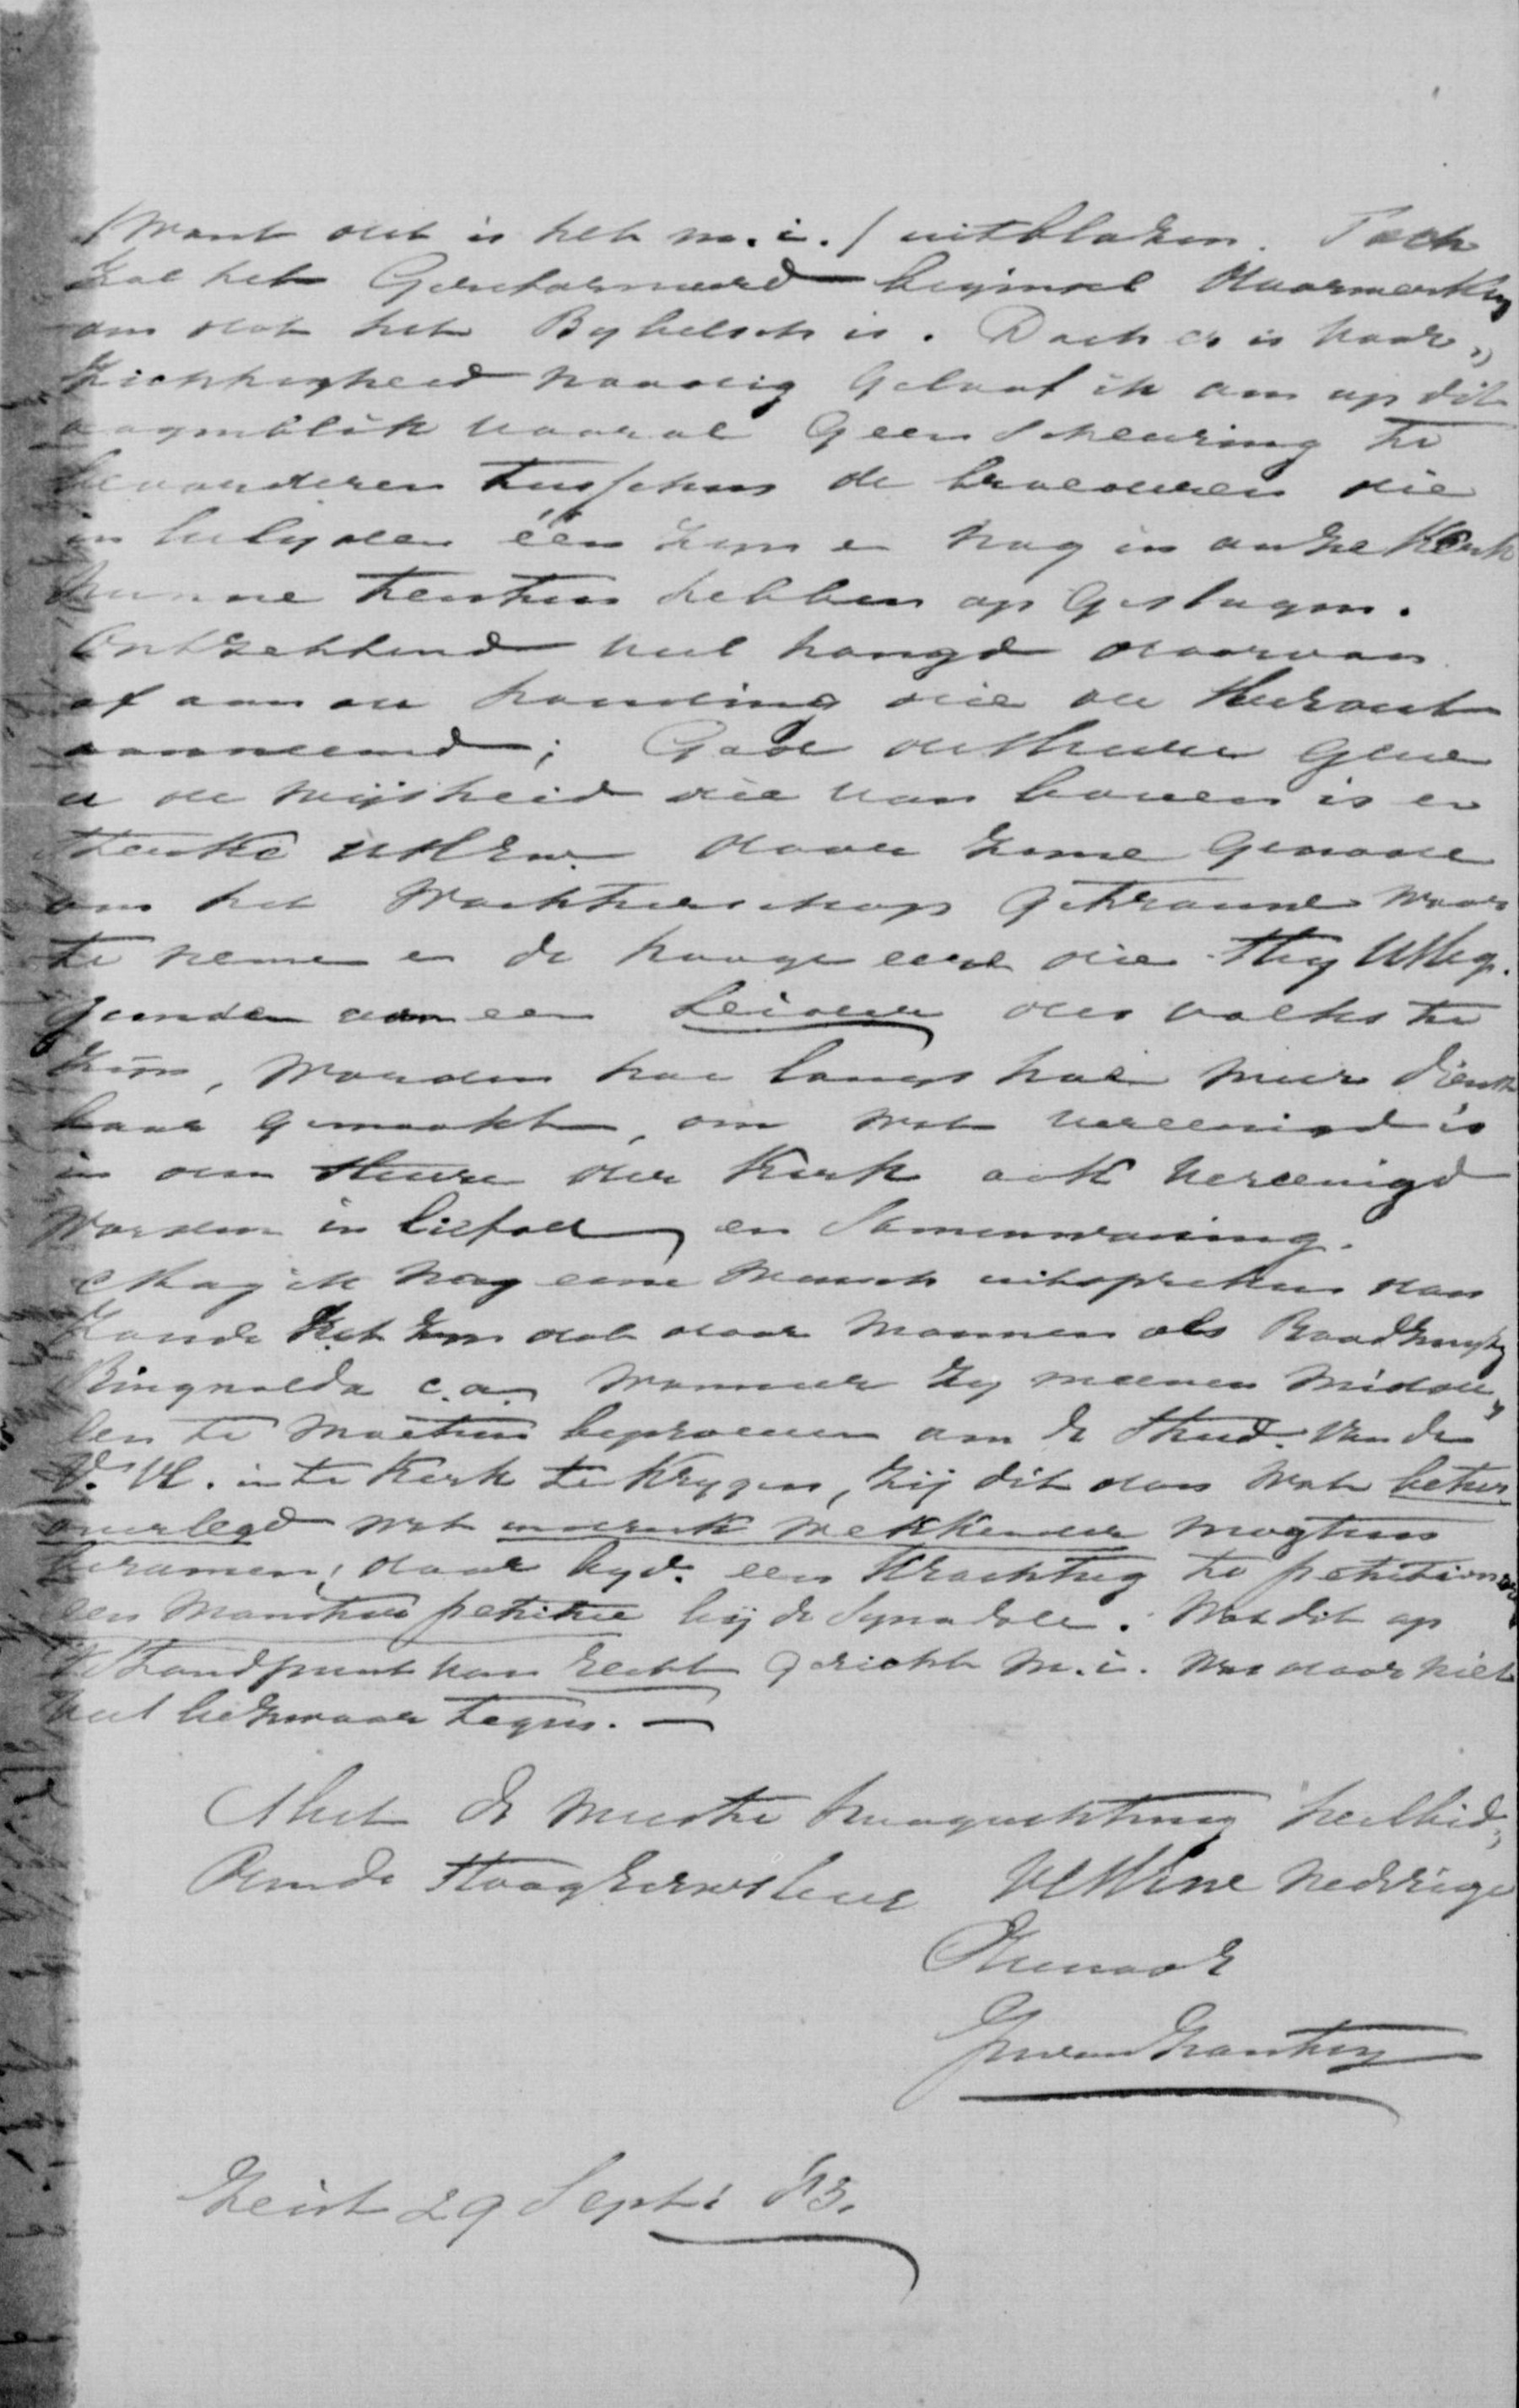 (want dit is het m.i.) uitblazen. Toch
zal het Gereformeerd beginsel doorwerken
om dat het Bybelsch is. Doch er is voor„
zichtigheid noodig geloof ik om op dit
oogenblik vooral geen scheuring te
bevorderen tusschen de broederen die
in belyden één zyn en nog in onze Kerk
hunne tenten hebben op geslagen.
Ontzettend veel hangd daarvan
af aan de houding die de Heraut
aanneemd; God de Heere geve
u de wijsheid die van boven is en
sterke UHEw. door zyne genade
om het Wachterschap getrouw waar
te nemen en de hooge eere die Hy UHg.
gunde om een Leider des volks te
zijn, worden hoe langs hoe meer dienst
baar gemaakt, om wat vereenigd is
in den Heere der Kerk ook vereenigd
worden in liefde en Samenwoning.
Mag ik nog eene wensch uitspreken dan
zoude het zyn dat door mannen als Raadhuyzen
Bingnalda c.a. wanneer zy meenen midde„
len te moeten beproeven om de Stud. van de
V.U. in te Kerk te krygen, zij dit dan wat beter
overlegd wat indruk wekkender mogten
beramen; door byv. een krachtig te petitioneren
een monster petitie bij de Synodale. Wat dit op
't Standpunt van recht gericht m.i. was daar niet
veel bezwaar tegen. —
Met de meeste hoogachting heilbid„
dende Hoogeerwsheer UHEne nedrige
Dienaar
Zeist 29 Sept: 83.